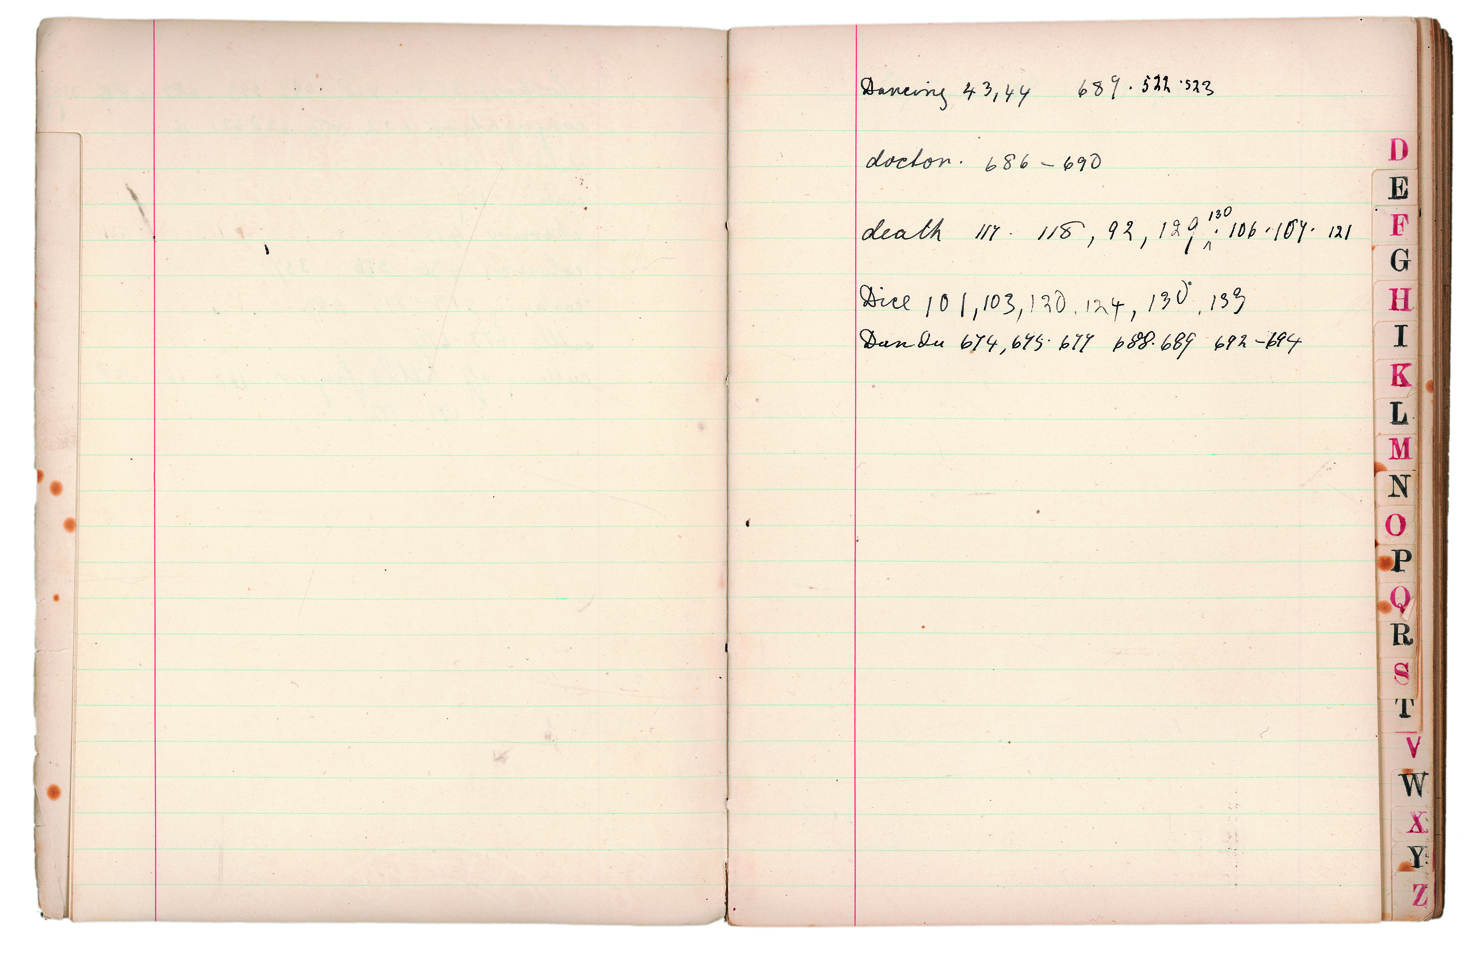 Dancing 43, 44 689 · 522 · 523
doctor. 686 – 690
130
death 117. 118, 92, 129, ^ · 106 · 107 · 121
Dice 101, 103, 120. 124, 130. 133
Dandu 674, 675. 677 688. 689 692 – 694
D
E
F
G
H
I
K
L
M
N
O
P
Q
R
S
T
V
W
X
Y
Z